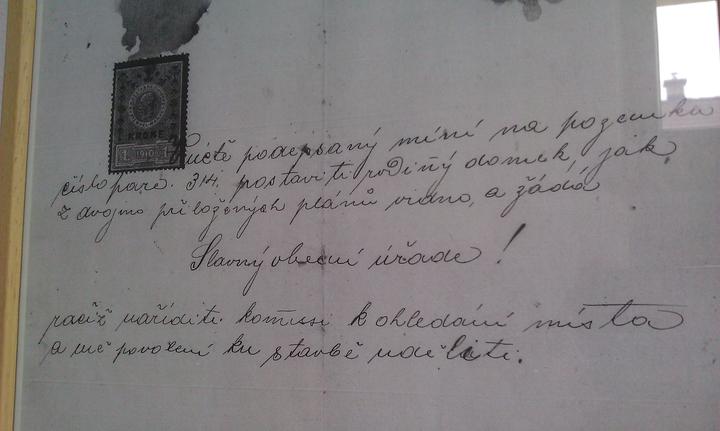 KRONE
1 1910 1
Ručtě podepsaný míní na pozemku
číslo parc. 314. postaviti rodiný domek, jak
z dvojmo přiložených plánů vidno, a žádá
Slavný obecní úřade!
račiž naříditi komissi k ohledání místa
a mě povolení ku stavbě uděliti.